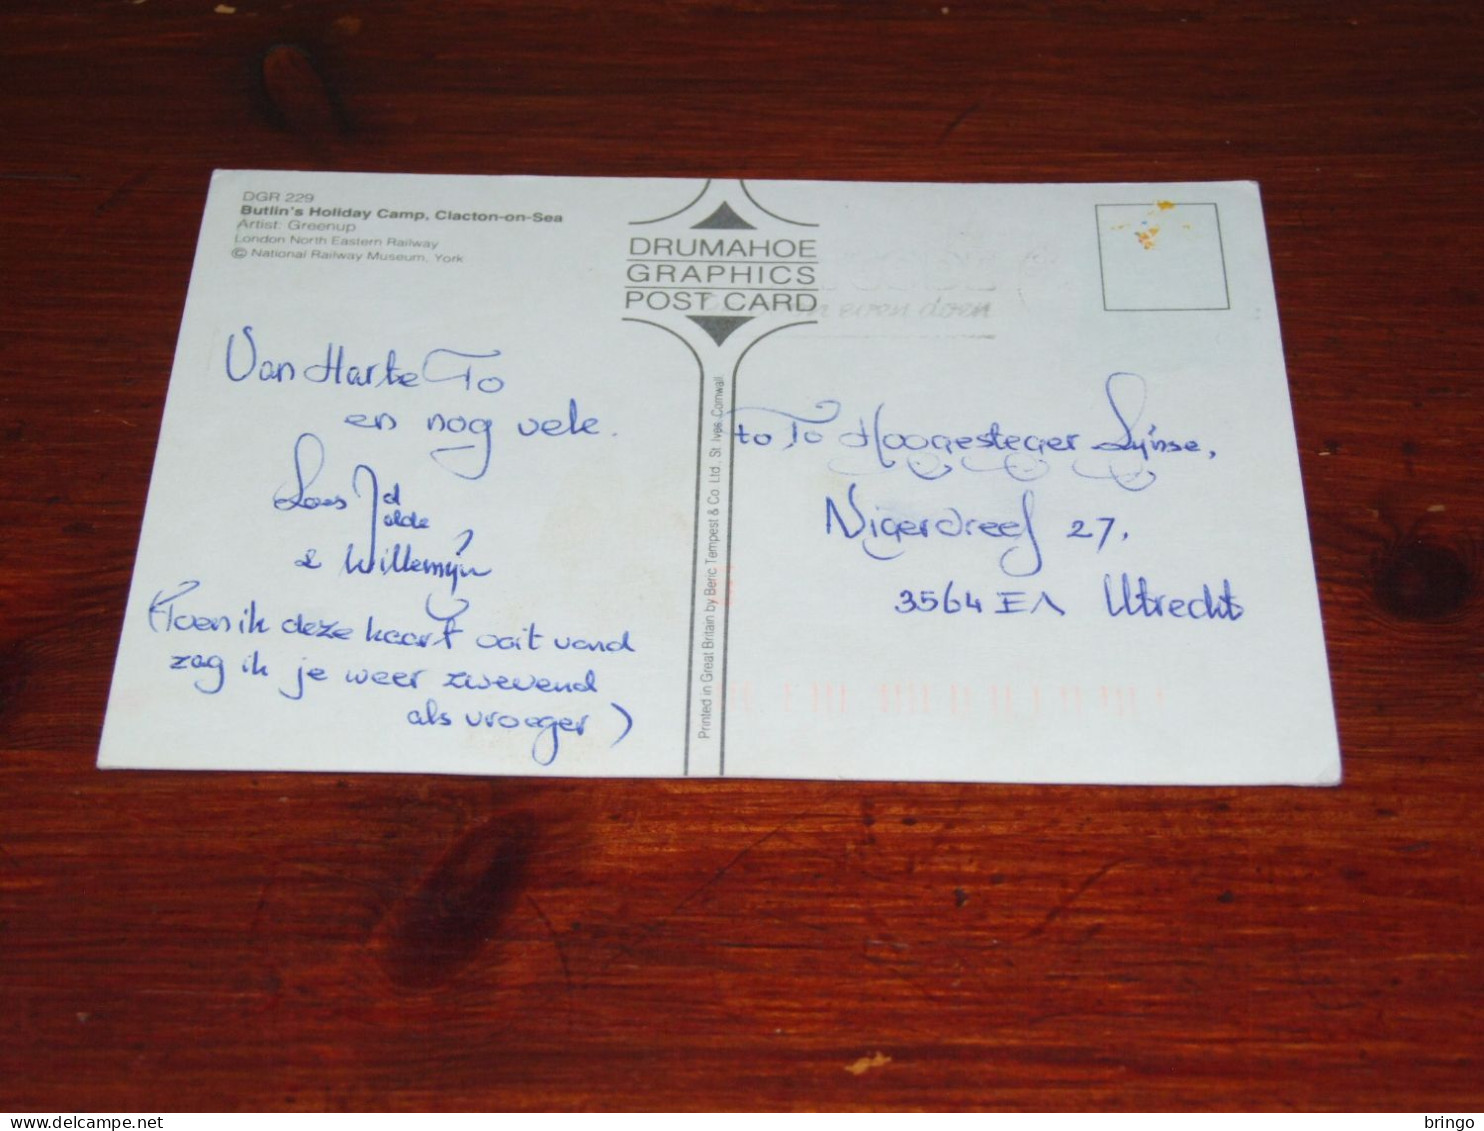 DGR 229
Butlin's Holiday Camp, Clacton-on-Sea
Artist: Greenup
London North Eastern Railway
© National Railway Museum, York
DRUMAHOE
GRAPHICS
POST CARD
even doen
Van Harte To
en nog vele.
Loes
& Willemijn
(Toen ik deze kaart ooit vond
zag ik je weer zwevend
als vroeger)
Printed in Great Britain by Beric Tempest & Co. Ltd., St. Ives, Cornwall
to To Hoogesteger
Nigerdreef 27.
3564 EA Utrecht
bringo